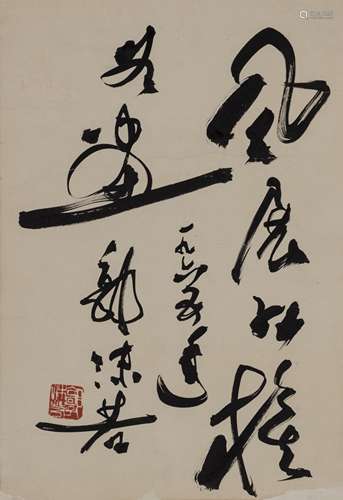 风展红旗
如画
一九六五年
郭沫若